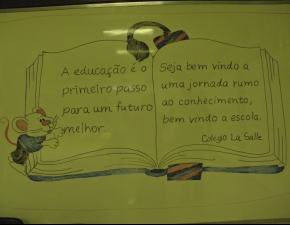 A educação é o
primeiro passo
para um futuro
melhor.
Seja bem vindo a
uma jornada rumo
ao conhecimento,
bem vindo a escola.
Colégio La Salle